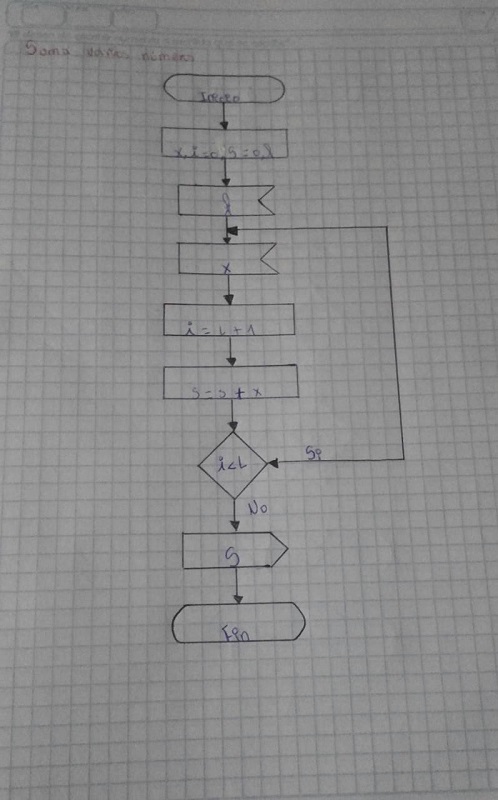 Suma varios números
Inicio
x, i=0, S=0, l
l
x
i = i + 1
S = S + x
i<L
Si
No
S
Fin